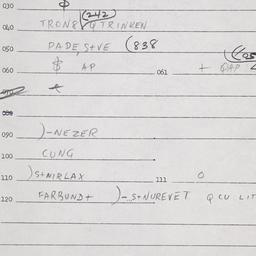 030
040 TRON8 (242) Q TRINKEN
050 PADE, S+VE (838
060 $ AP 061 + QAP
090 )-NEZER
100 CUNG
110 )S+NIRLAX 111 O
120 FARBUND+ )-S+NUREVET Q CU LIT